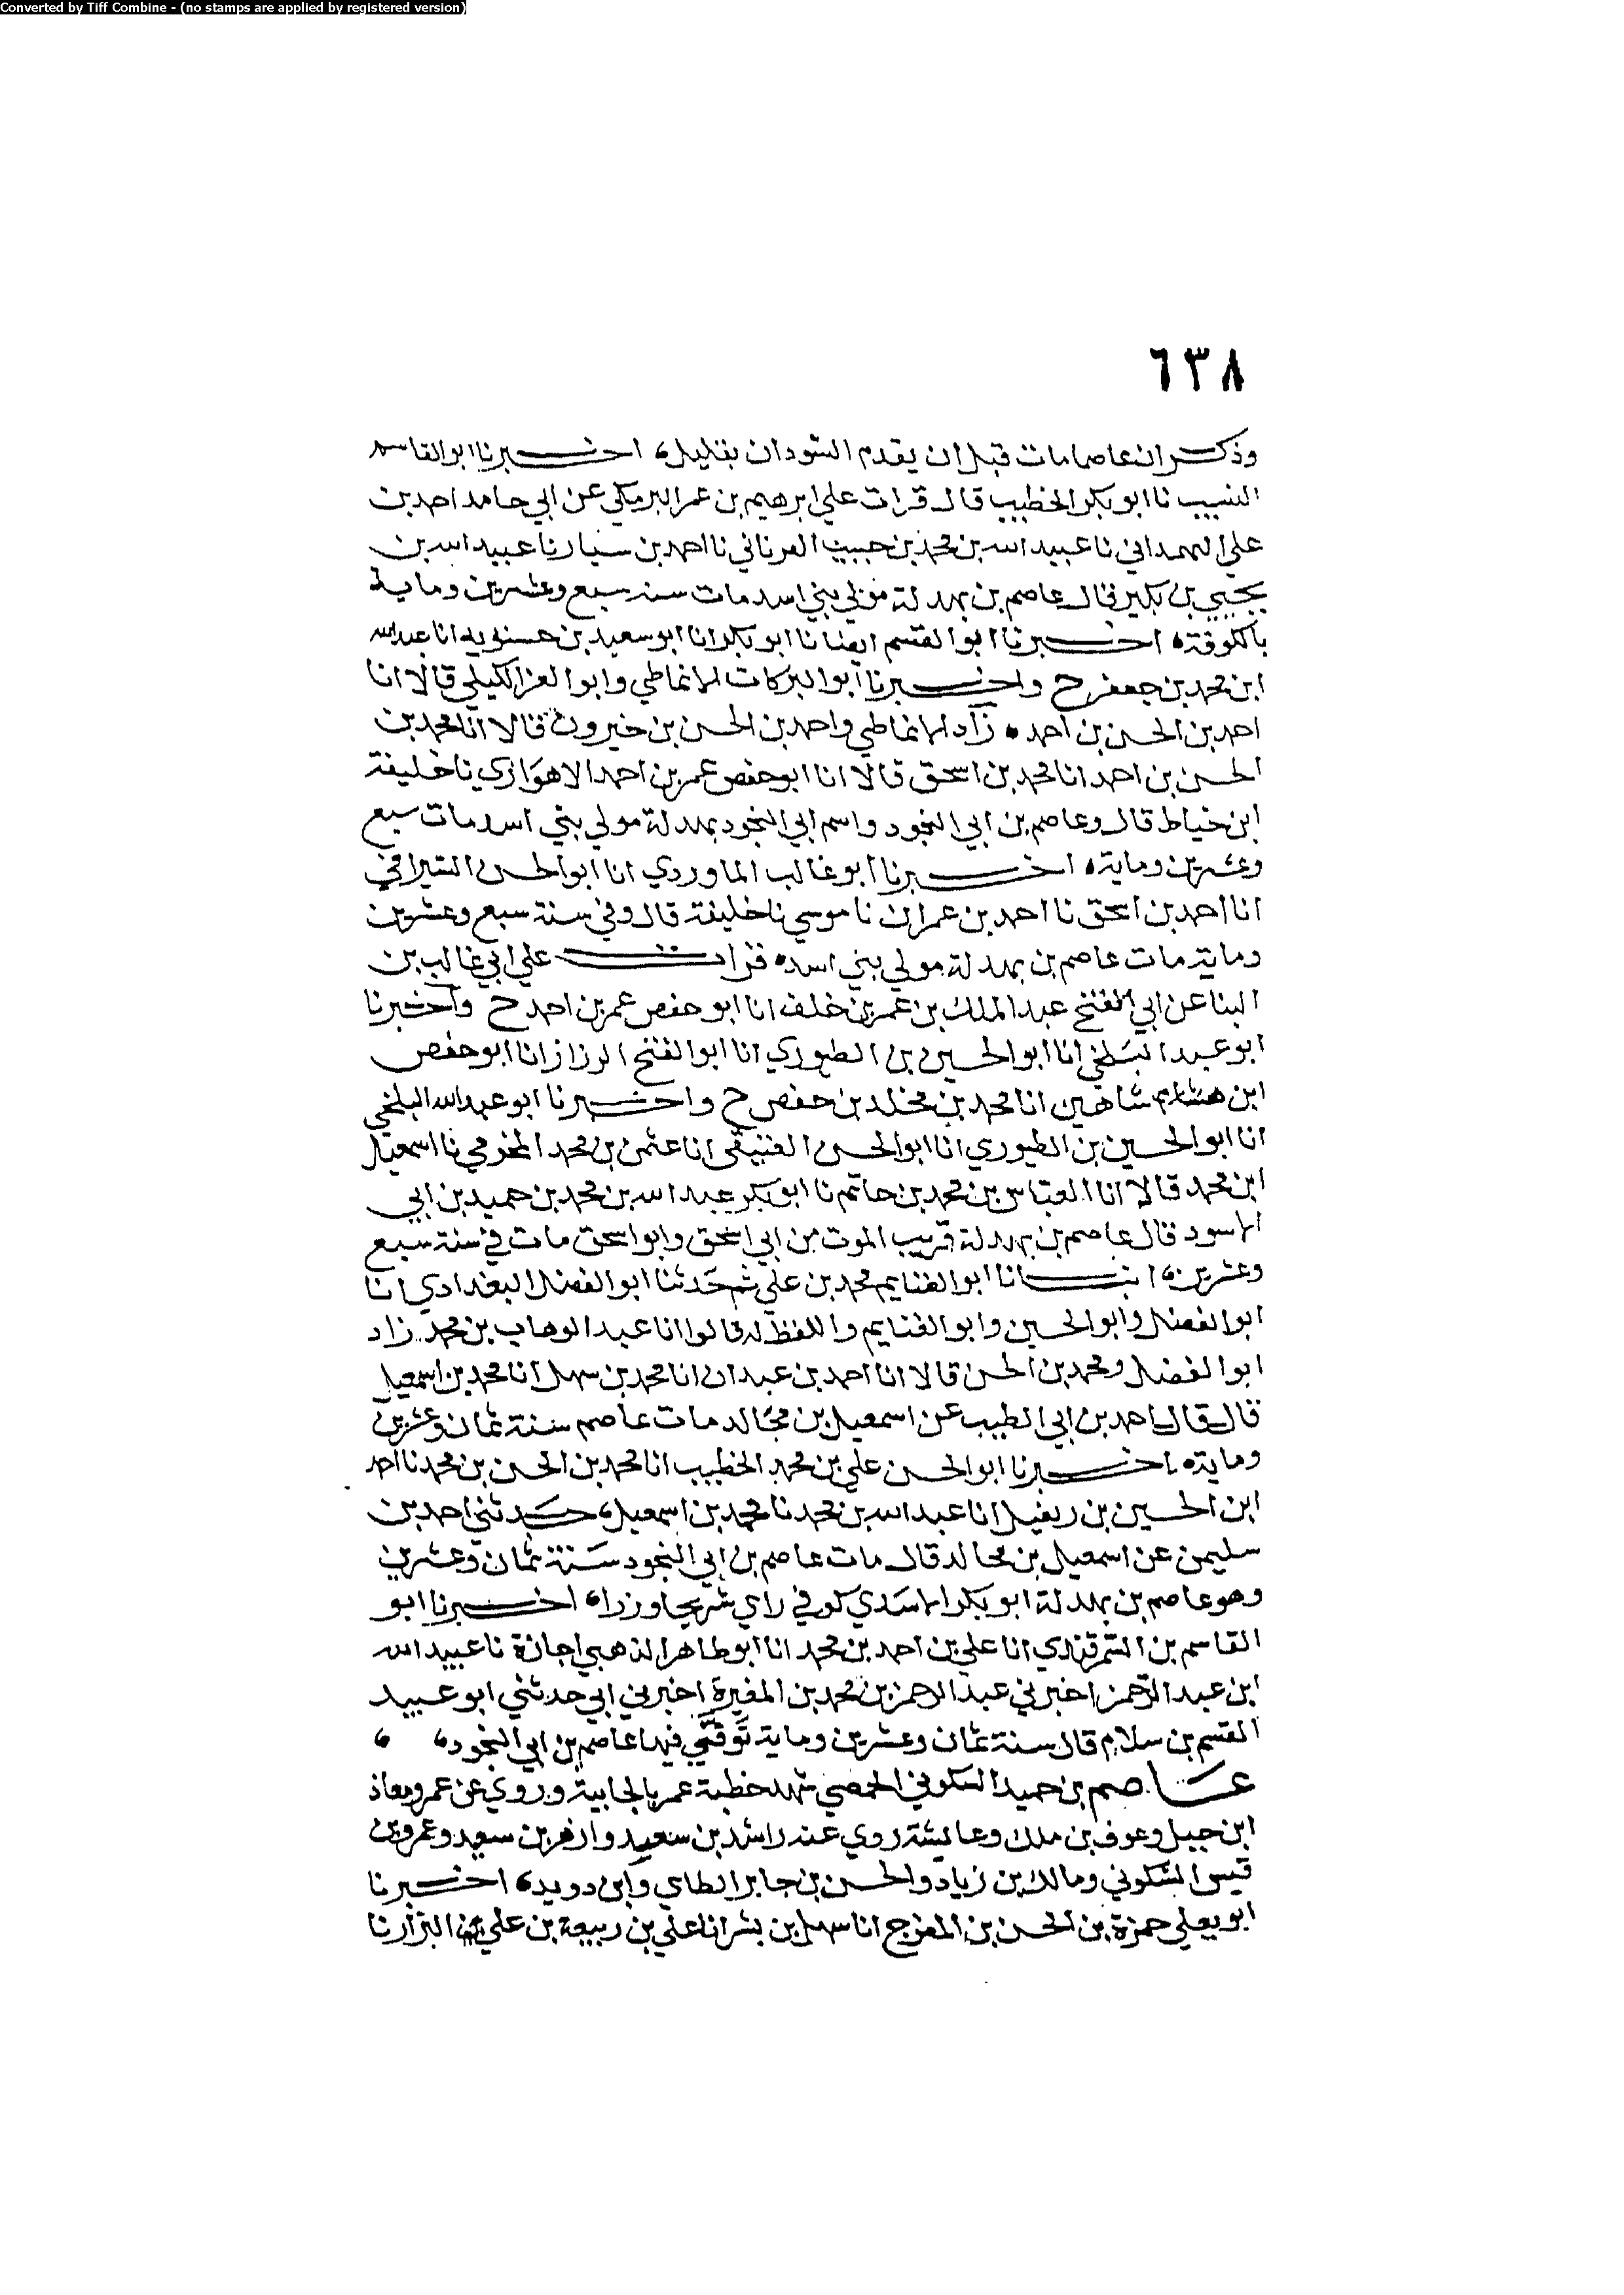 Converted by Tiff Combine - (no stamps are applied by registered version)
٦٣٨
وذكر ان عاصما مات قبل ان يقدم السودان بقليل، اخبرنا ابوالقاسم
النسيب نا ابوبكر الخطيب قال قرات علي ابرهيم بن عمر البرمكي عن ابي حامد احمد بن
علي الهمداني نا عبيد الله بن محمد بن حبيب نا احمد بن سيار نا عبيد الله بن
يحيي بن بكير قال عاصم بن بهدلة مولي بني اسد مات سنة سبع وعشرين وماية
بالكوفة ه اخبرنا ابوالقسم ايضا نا ابوبكر انا ابوسعيد بن حسنويه انا عبدالله
ابن محمد بن جعفر ح واخبرنا ابوالبركات الانماطي وابوالعز الكيلي قالا انا
احمد بن الحسن بن احمد ه زاد الانماطي واحمد بن الحسن بن خيرون قالا انا محمد بن
الحسن بن احمد انا محمد بن اسحق قالا انا ابوحفص عمر بن احمد الاهوازي نا خليفة
ابن خياط قال وعاصم بن ابي النجود واسم ابي النجود بهدلة مولي بني اسد مات سبع
وعشرين وماية ه اخبرنا ابوغالب الماوردي انا ابوالحسن السيرافي
انا احمد بن اسحق نا احمد بن عمران نا موسي نا خليفة قال وفي سنة سبع وعشرين
وماية مات عاصم بن بهدلة مولي بني اسد ه قرات علي ابي غالب بن
البنا عن ابي الفتح عبدالملك بن عمر بن خلف انا ابوحفص عمر بن احمد ح واخبرنا
ابوعبدا البلخي انا ابوالحسين بن الطيوري انا ابوالفتح الرزاز انا ابوحفص
ابن شاهين انا محمد بن مخلد بن حفص ح واخبرنا ابوعبدالله البلخي
انا ابوالحسين بن الطيوري انا ابوالحسن العتيقي انا عثمن بن محمد المخرمي نا اسمعيل
ابن محمد قالا انا العباس بن محمد بن حاتم نا ابوبكر عبدالله بن محمد بن حميد بن ابي
الاسود قال عاصم بن بهدلة قريب الموت من ابي اسحق وابواسحق مات في سنة سبع
وعشرين ه انبانا ابوالغنايم محمد بن علي ثم حدثنا ابوالفضل البغدادي انا
ابوالفضل وابوالحسين وابوالغنايم واللفظ له قالوا انا عبدالوهاب بن محمد زاد
ابوالفضل ومحمد بن الحسن قالا انا احمد بن عبدان انا محمد بن سهل انا محمد بن اسمعيل
قال قال احمد بن ابي الطيب عن اسمعيل بن مجالد مات عاصم سنة ثمان وعشرين
وماية ه اخبرنا ابوالحسن علي بن محمد الخطيب انا محمد بن الحسن بن محمد نا احمد
ابن الحسين بن زنبيل انا عبدالله بن محمد نا محمد بن اسمعيل، حدثني احمد بن
سليمن عن اسمعيل بن مجالد قال مات عاصم بن ابي النجود سنة ثمان وعشرين
وهو عاصم بن بهدلة ابوبكر الاسدي كوفي راي شريحا وزرا، اخبرنا ابو
القاسم بن السمرقندي انا علي بن احمد بن محمد انا ابوطاهر الذهبي اجازة نا عبيد الله
ابن عبد الرحمن اخبرني عبدالرحمن بن محمد بن المغيرة اخبرني ابي حدثني ابوعبيد
القسم بن سلام قال سنة ثمان وعشرين وماية توفي فيها عاصم بن ابي النجود، ه
عاصم بن حميد السكوني الحمصي شهد خطبة عمر بالجابية وروي عن عمر ومعاذ
ابن جبل وعوف بن ملك وعايشة روي عنه راشد بن سعد وازهر بن سعيد وعمرو بن
قيس السكوني ومالك بن زياد والحسن بن جابر الطاي وابن دويد، اخبرنا
ابويعلي حمزة بن الحسن بن المفرج انا سهل بن بشر انا علي بن ربيعة بن علي البزار نا